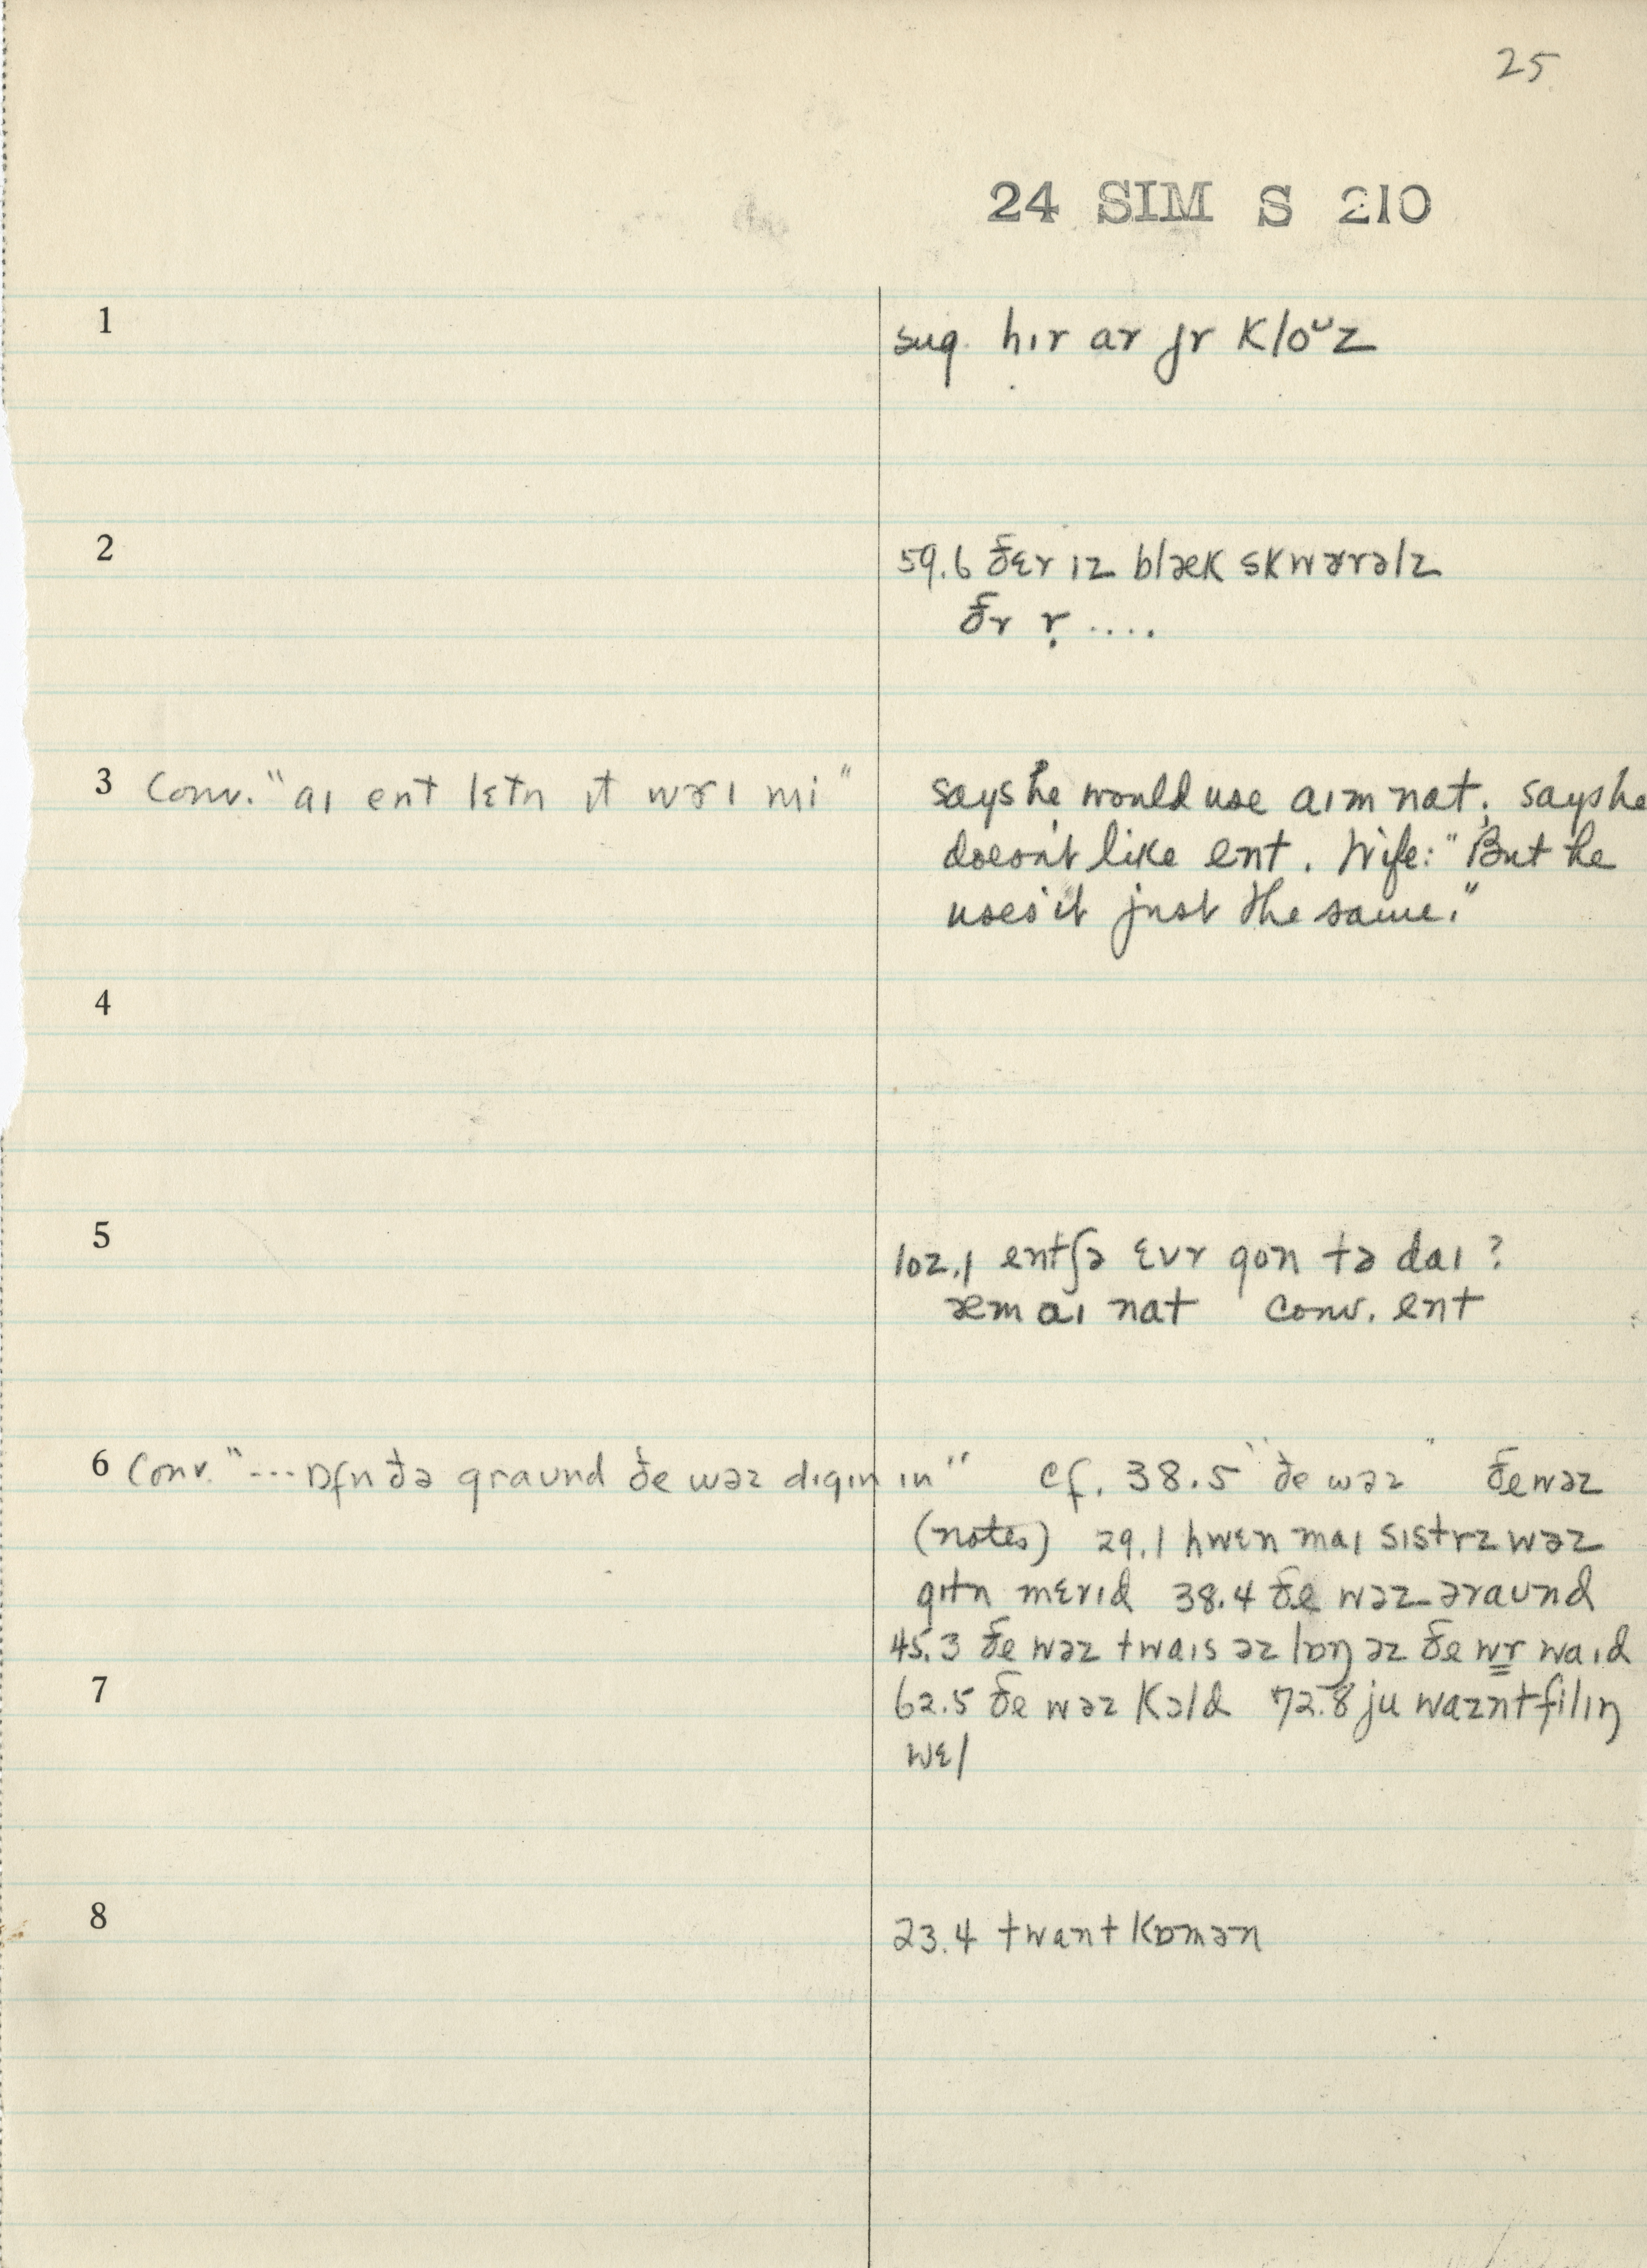 25
24 SIM S 210
1 sug. hɪr ar jr kloᴜz
2 59.6 ðɛr ɪz blæk skwɚrəlz
ðr r̩ ....
3 Conv. "aɪ ent lɛtn ɪt wɚɪ mi" says he would use aɪm nat; says he
doesn't like ent. Wife: "But he
uses it just the same."
4
5 102.1 entʃə ɛvr gon tə daɪ?
æm aɪ nat conv. ent
6 Conv. "--- ɒfn ðə graʊnd ðe wəz dɪgɪn ɪn" cf. 38.5 "ðe wəz" ðe wəz
(notes) 29.1 hwɛn maɪ sɪstrz wəz
gɪtn mɛrɪd 38.4 ðe wəz əraʊnd
45.3 ðe wəz twaɪs əz lɒŋ əz ðe wr waɪd
7 62.5 ðe wəz kɔld 72.8 ju waznt filɪŋ
wɛl
8 23.4 twant kɒmən